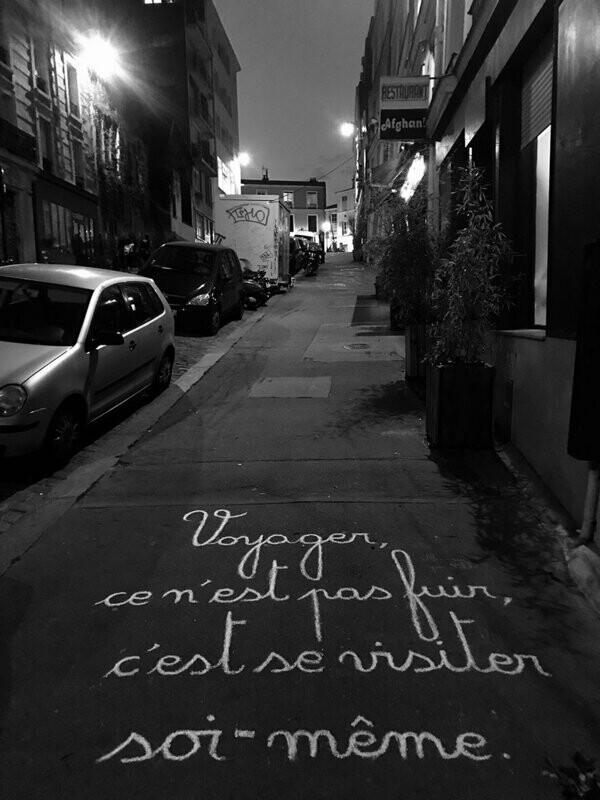 RESTAURANT
Afghani
Voyager,
ce n'est pas fuir,
c'est se visiter
soi-même.